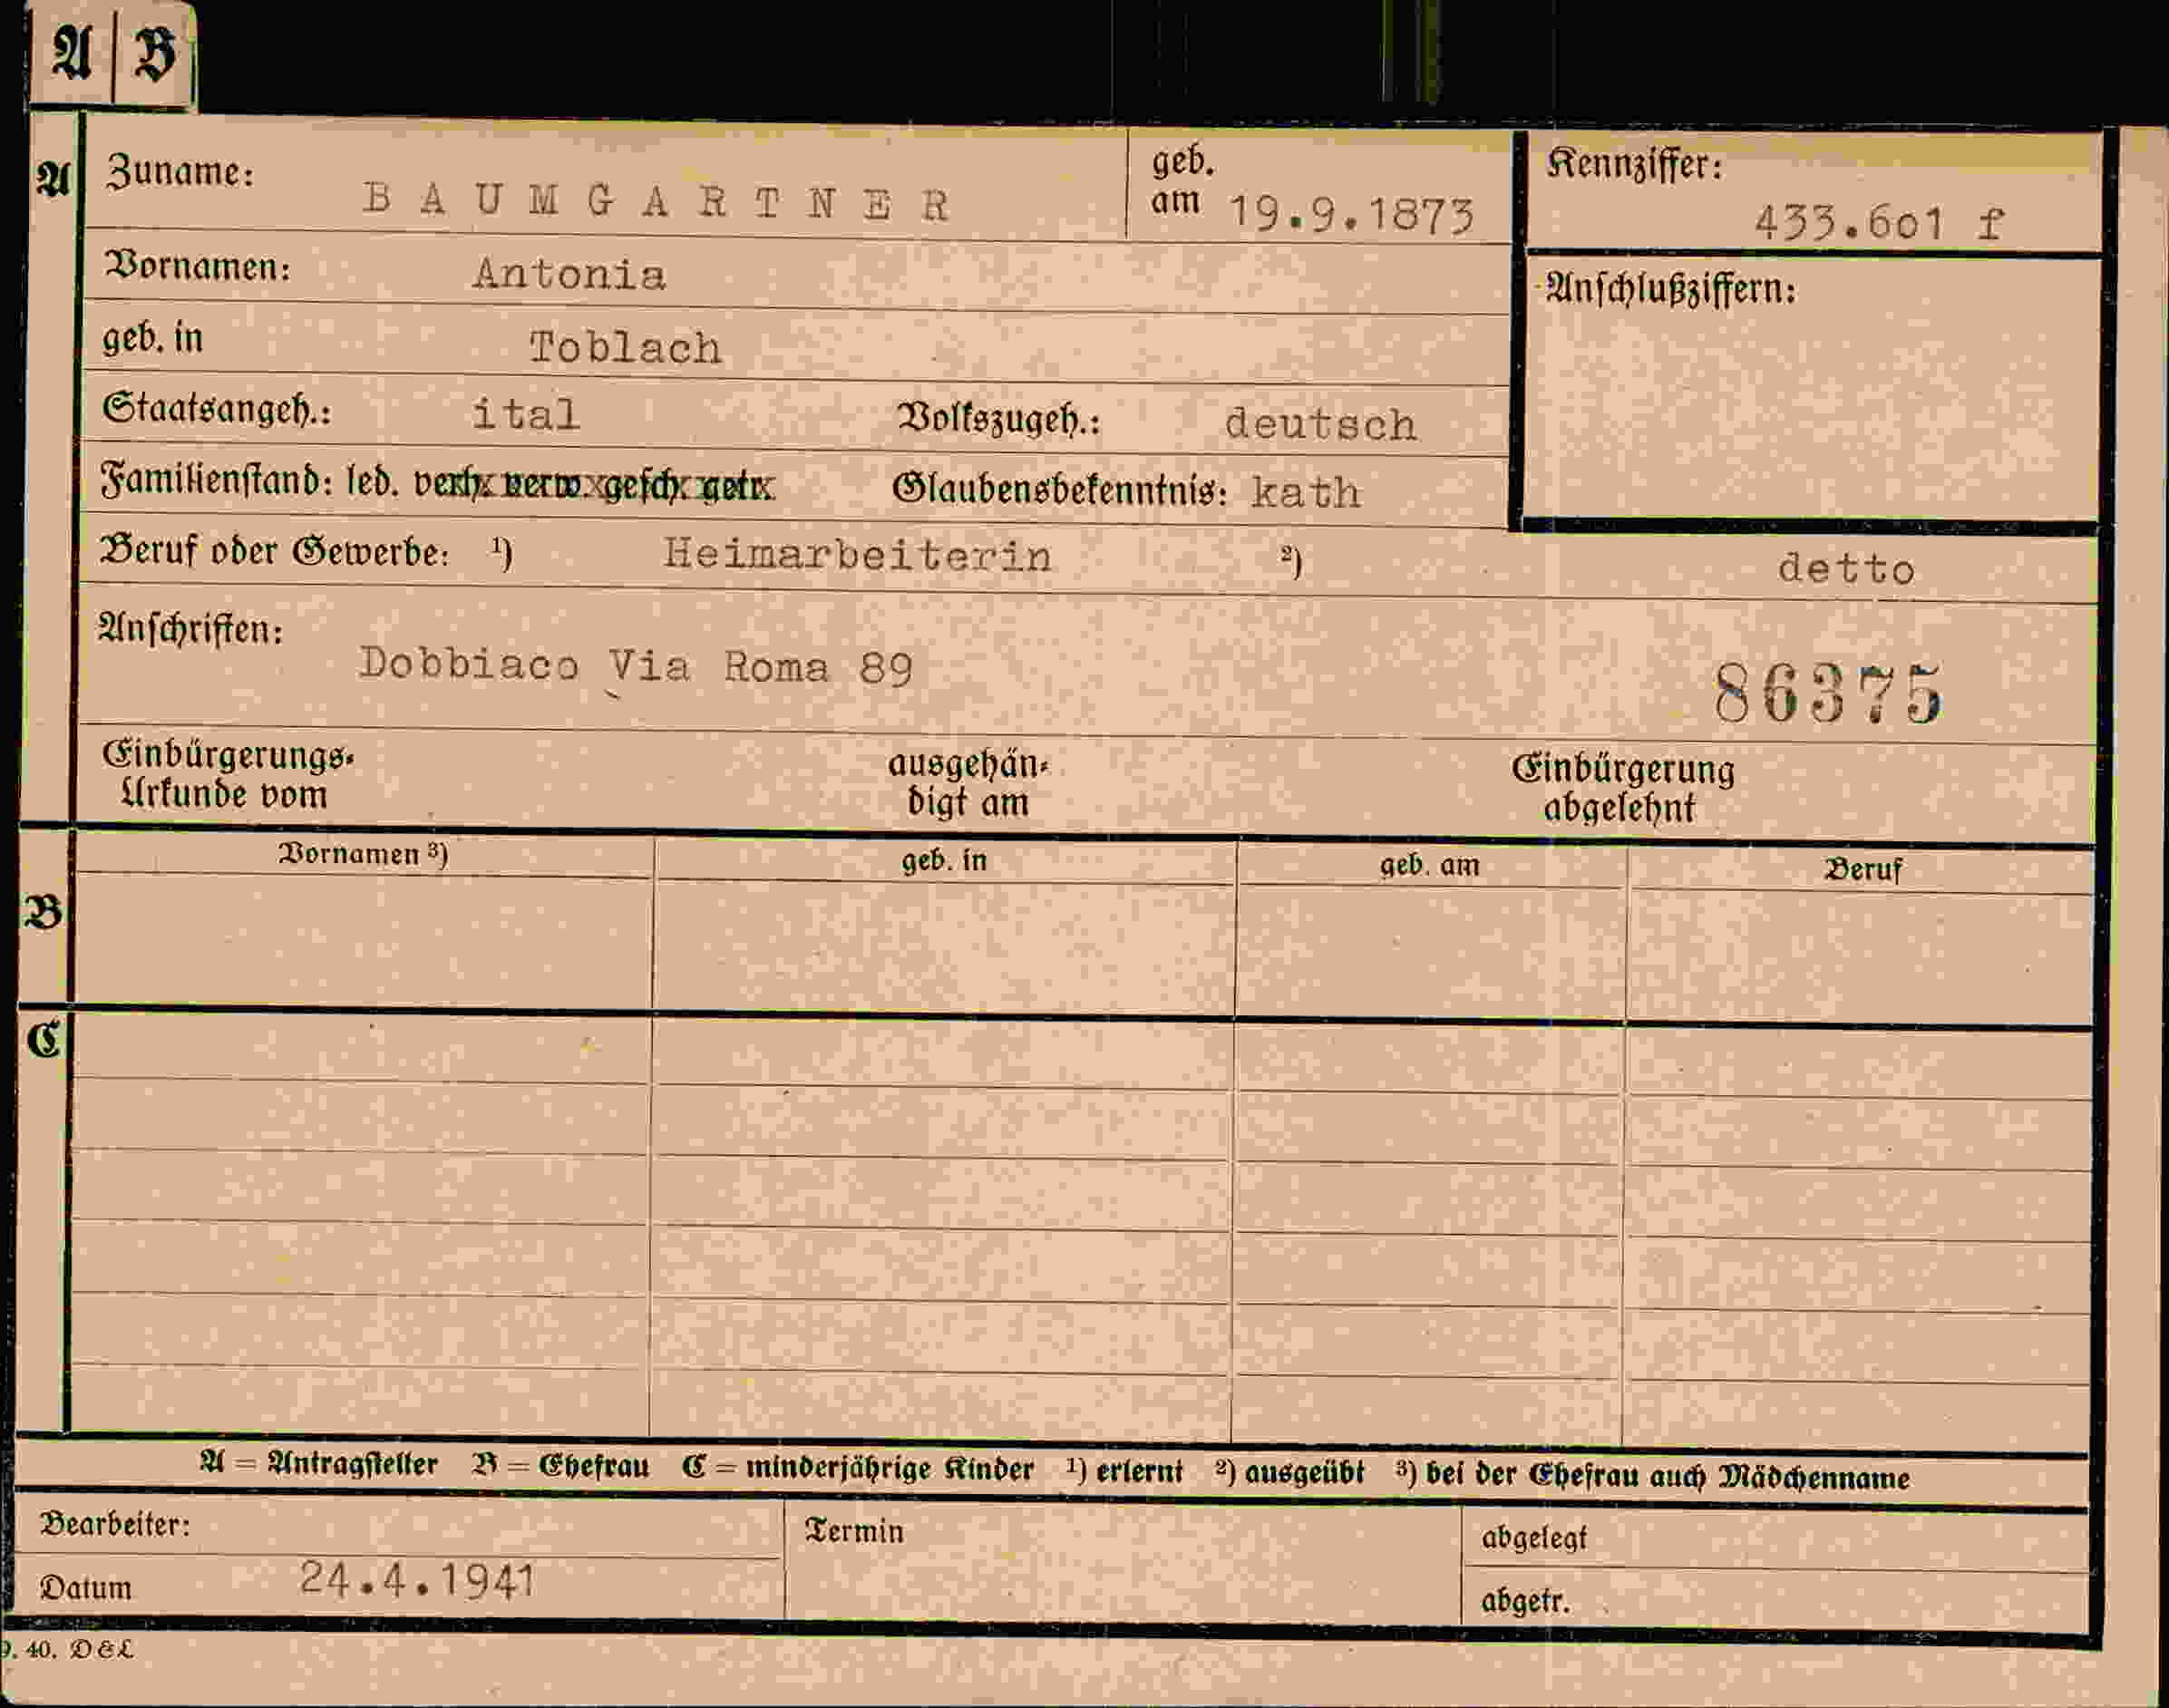 A B
A Zuname: BAUMGARTNER geb. am 19.9.1873 Kennziffer: 433.601 f
Vornamen: Antonia Anschlußziffern:
geb. in Toblach
Staatsangeh.: ital Volkszugeh.: deutsch
Familienstand: led. verh. verw. gesch. getr. Glaubensbekenntnis: kath
Beruf oder Gewerbe: 1) Heimarbeiterin 2) detto
Anschriften: Dobbiaco Via Roma 89 86375
Einbürgerungs- ausgehän- Einbürgerung
Urkunde vom digt am abgelehnt
Vornamen 3) geb. in geb. am Beruf
B
C
A = Antragsteller B = Ehefrau C = minderjährige Kinder 1) erlernt 2) ausgeübt 3) bei der Ehefrau auch Mädchenname
Bearbeiter: Termin abgelegt
Datum 24.4.1941 abgetr.
9. 40. D&L